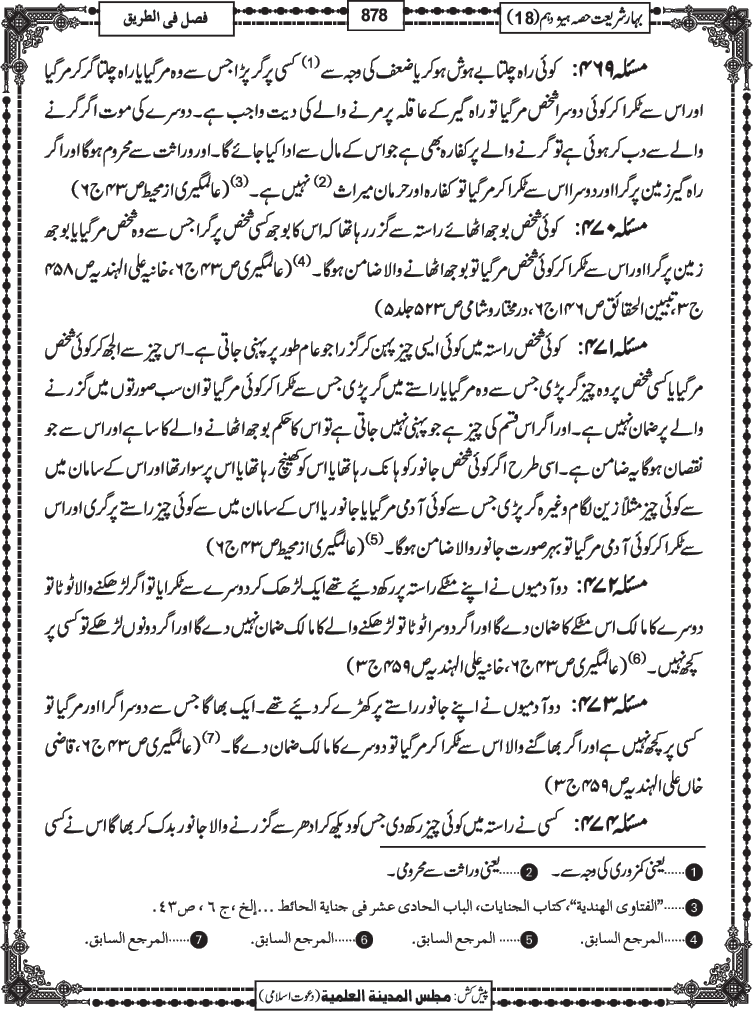 بہارِ شریعت حصہ ہیژدہم (18)
878
فصل فی الطریق
مسئلہ ۴۶۹: کوئی راہ چلتا بے ہوش ہوکر یا ضعف کی وجہ سے (1) کسی پر گر پڑا جس سے وہ مرگیا یا راہ چلتا گر کر مرگیا
اور اس سے ٹکرا کر کوئی دوسرا شخص مرگیا تو راہ گیر کے عاقلہ پر مرنے والے کی دیت واجب ہے۔ دوسرے کی موت اگر گرنے
والے سے دب کر ہوئی ہے تو گرنے والے پر کفارہ بھی ہے جو اس کے مال سے ادا کیا جائے گا۔ اور وراثت سے محروم ہوگا اور اگر
راہ گیر زمین پر گرا اور دوسرا اس سے ٹکرا کر مرگیا تو کفارہ اور حرمان میراث (2) نہیں ہے۔ (3) (عالمگیری از محیط ص ۴۳ ج ۶)
مسئلہ ۴۷۰: کوئی شخص بوجھ اٹھائے راستہ سے گزر رہا تھا کہ اس کا بوجھ کسی شخص پر گرا جس سے وہ شخص مرگیا یا بوجھ
زمین پر گرا اور اس سے ٹکرا کر کوئی شخص مرگیا تو بوجھ اٹھانے والا ضامن ہوگا۔ (4) (عالمگیری ص ۴۳ ج ۶، خانیہ علی الہندیہ ص ۴۵۸
ج ۳، تبیین الحقائق ص ۱۴۶ ج ۶، درمختار و شامی ص ۵۲۳ جلد ۵)
مسئلہ ۴۷۱: کوئی شخص راستہ میں کوئی ایسی چیز پہن کر گزرا جو عام طور پر پہنی جاتی ہے۔ اس چیز سے الجھ کر کوئی شخص
مرگیا یا کسی شخص پر وہ چیز گر پڑی جس سے وہ مرگیا یا راستے میں گر پڑی جس سے ٹکرا کر کوئی مرگیا تو ان سب صورتوں میں گزرنے
والے پر ضمان نہیں ہے۔ اور اگر اس قسم کی چیز ہے جو پہنی نہیں جاتی ہے تو اس کا حکم بوجھ اٹھانے والے کا سا ہے اور اس سے جو
نقصان ہوگا یہ ضامن ہے۔ اسی طرح اگر کوئی شخص جانور کو ہانک رہا تھا یا اس کو کھینچ رہا تھا یا اس پر سوار تھا اور اس کے سامان میں
سے کوئی چیز مثلاً زین لگام وغیرہ گر پڑی جس سے کوئی آدمی مرگیا یا جانور یا اس کے سامان میں سے کوئی چیز راستے پر گری اور اس
سے ٹکرا کر کوئی آدمی مرگیا تو بہر صورت جانور والا ضامن ہوگا۔ (5) (عالمگیری از محیط ص ۴۳ ج ۶)
مسئلہ ۴۷۲: دو آدمیوں نے اپنے مٹکے راستہ پر رکھ دیئے تھے ایک لڑھک کر دوسرے سے ٹکرایا تو اگر لڑھکنے والا ٹوٹا تو
دوسرے کا مالک اس مٹکے کا ضمان دے گا اور اگر دوسرا ٹوٹا تو لڑھکنے والے کا مالک ضمان نہیں دے گا اور اگر دونوں لڑھکے تو کسی پر
کچھ نہیں۔ (6) (عالمگیری ص ۴۳ ج ۶، خانیہ علی الہندیہ ص ۴۵۹ ج ۳)
مسئلہ ۴۷۳: دو آدمیوں نے اپنے جانور راستے پر کھڑے کر دیئے تھے۔ ایک بھاگا جس سے دوسرا گرا اور مرگیا تو
کسی پر کچھ نہیں ہے اور اگر بھاگنے والا اس سے ٹکرا کر مرگیا تو دوسرے کا مالک ضمان دے گا۔ (7) (عالمگیری ص ۴۳ ج ۶، قاضی
خاں علی الہندیہ ص ۴۵۹ ج ۳)
مسئلہ ۴۷۴: کسی نے راستہ میں کوئی چیز رکھ دی جس کو دیکھ کر ادھر سے گزرنے والا جانور بدک کر بھاگا اس نے کسی
1......یعنی کمزوری کی وجہ سے۔ 2......یعنی وراثت سے محرومی۔
3......"الفتاوی الهندیة"، کتاب الجنایات، الباب الحادی عشر فی جنایة الحائط ...إلخ، ج ٦ ، ص ٤٣.
4......المرجع السابق. 5......المرجع السابق. 6......المرجع السابق. 7......المرجع السابق.
پیش کش: مجلس المدینة العلمیة (دعوت اسلامی)